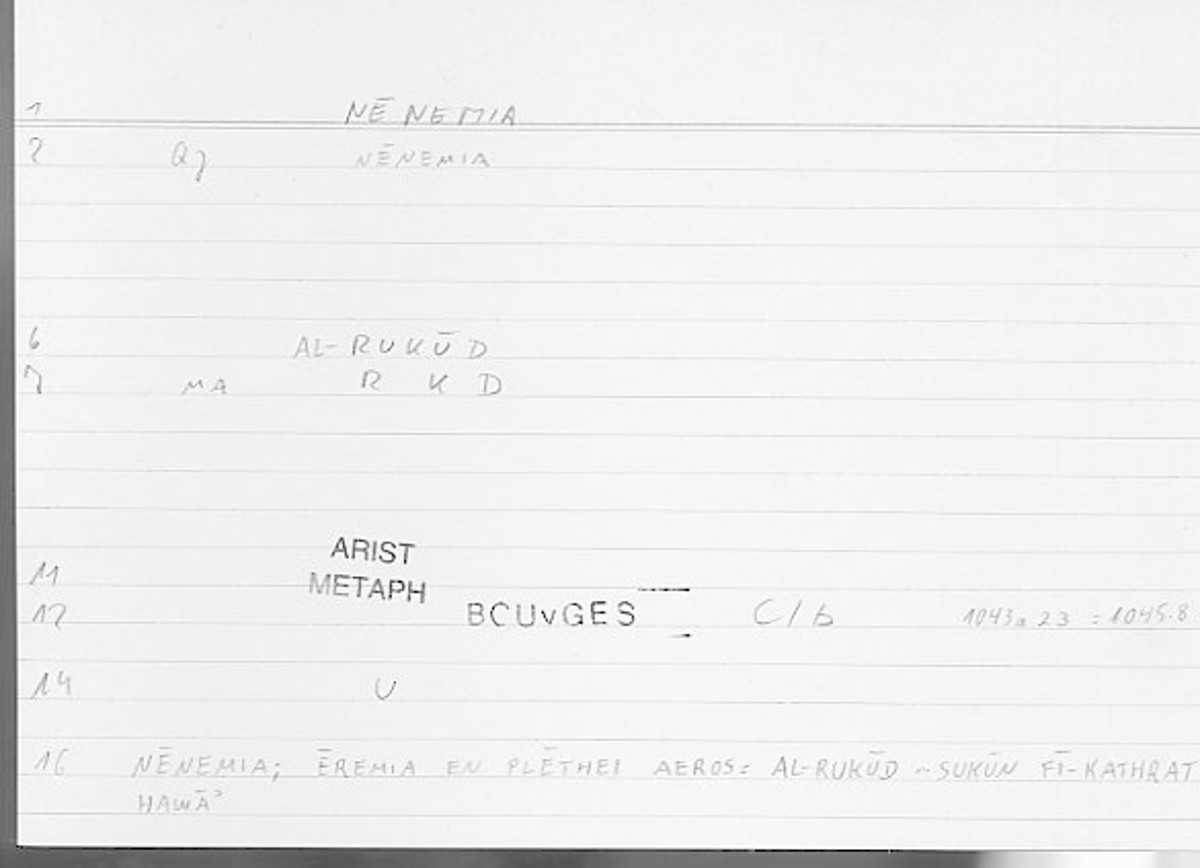 1 NĒNEMIA
2 Qj NĒNEMIA
6 AL-RUKŪD
7 MA R K D
ARIST
11 METAPH
12 BCUvGES C/b 1043a23 = 1045.8
14 U
16 NĒNEMIA; ĒREMIA EN PLĒTHEI AEROS = AL-RUKŪD ~ SUKŪN FĪ-KATHRAT
HAWĀʾ